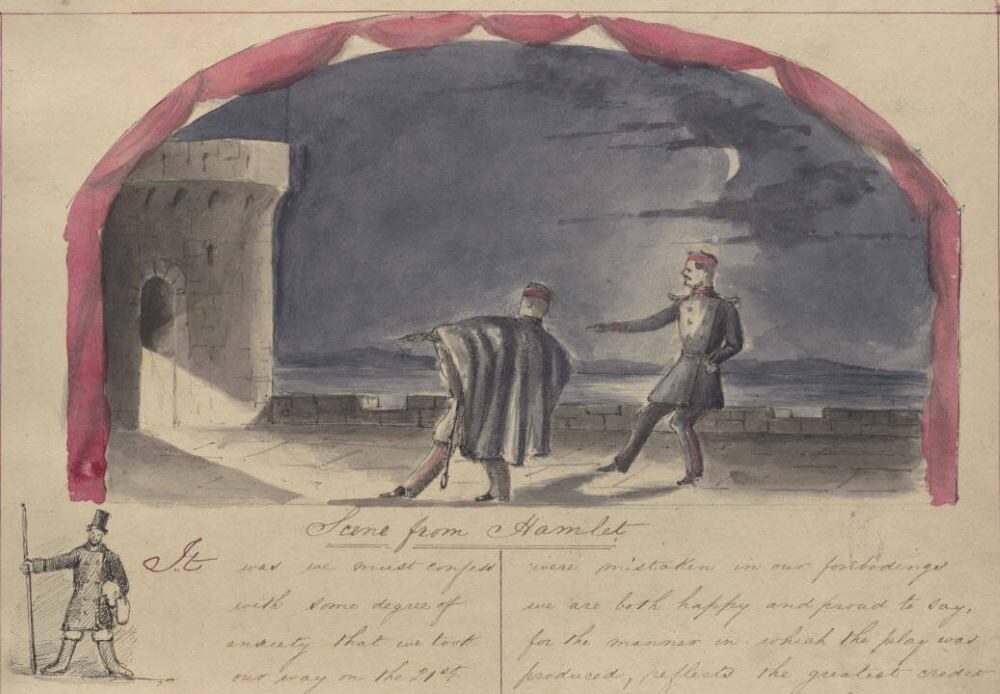 Scene from Hamlet
It was we must confess
with some degree of
anxiety that we took
our way on the 21st
were mistaken in our forebodings
we are both happy and proud to say,
for the manner in which the play was
produced, reflects the greatest credit